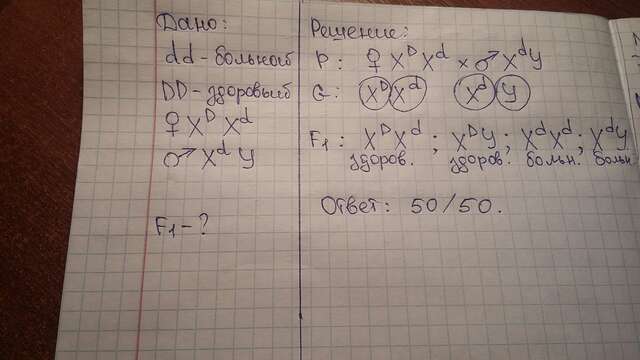 Дано:
dd - больной
DD - здоровый
♀ XᴰXᵈ
♂ XᵈY
F₁ - ?
Решение:
P: ♀ XᴰXᵈ × ♂ XᵈY
G: Xᴰ Xᵈ Xᵈ Y
F₁: XᴰXᵈ; XᴰY; XᵈXᵈ; XᵈY
здоров. здоров. больн. больн
Ответ: 50/50.